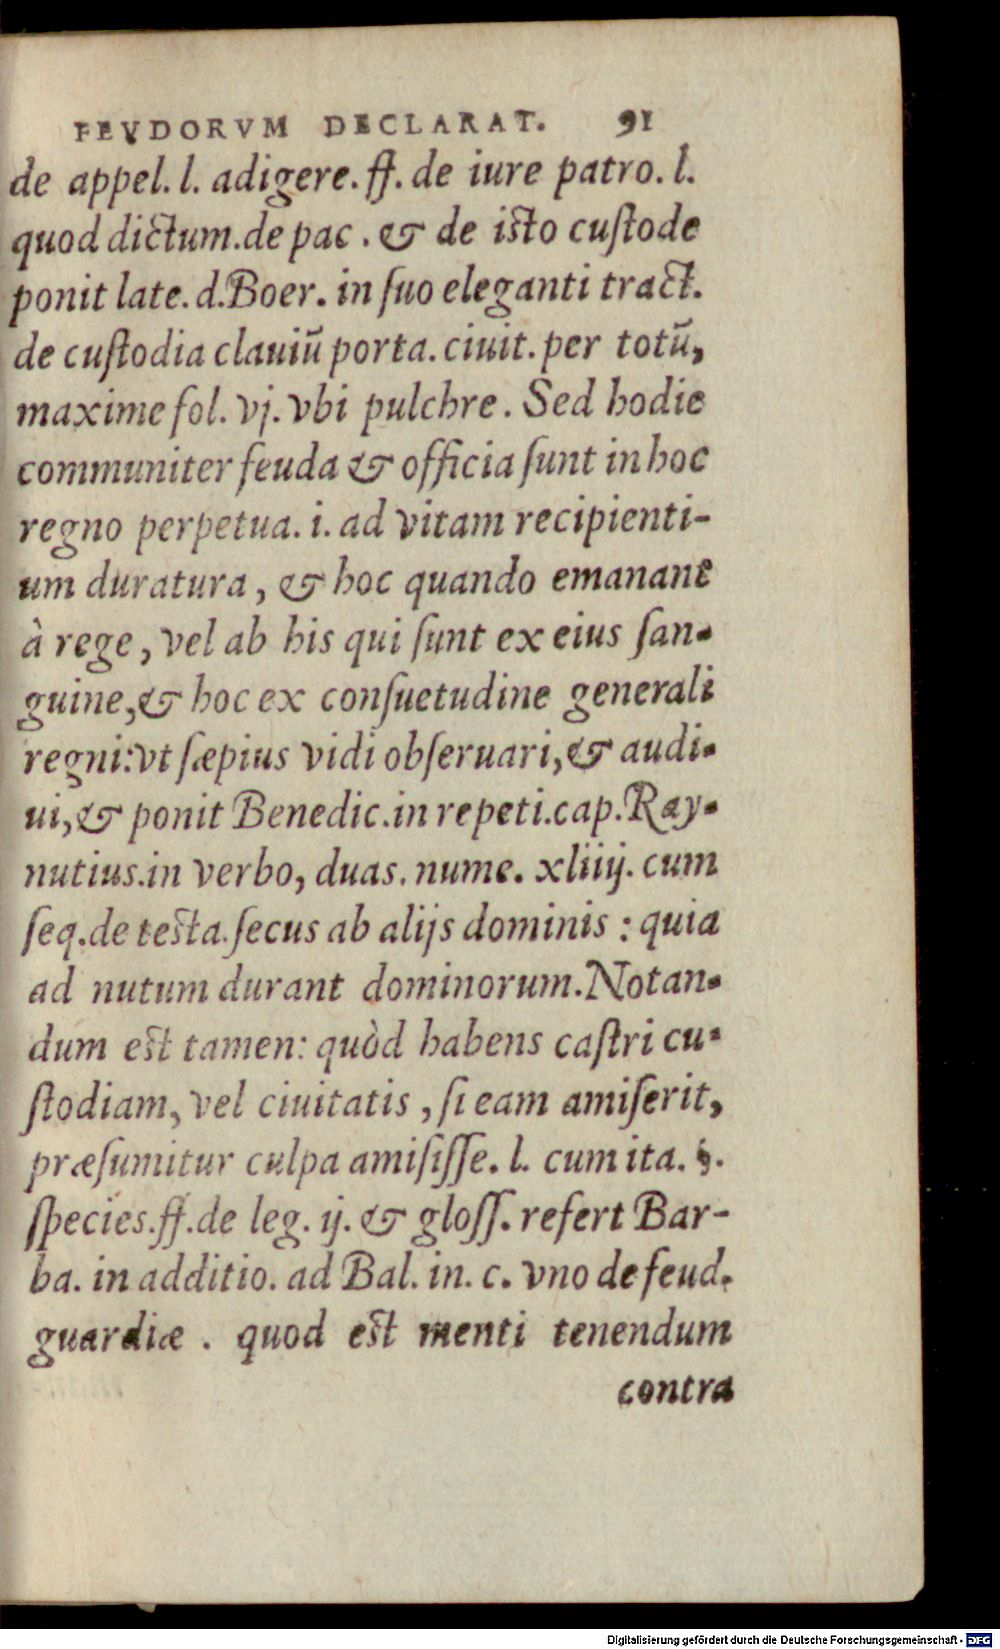 FEVDORVM DECLARAT. 91
de appel. l. adigere. ff. de iure patro. l.
quod dictum. de pac. & de isto cuſtode
ponit late. d. Boer. in ſuo eleganti tract.
de cuſtodia clauiũ porta. ciuit. per totũ,
maxime fol. vj. vbi pulchre. Sed hodie
communiter feuda & officia ſunt in hoc
regno perpetua. i. ad vitam recipienti-
um duratura, & hoc quando emanant
à rege, vel ab his qui ſunt ex eius ſan-
guine, & hoc ex conſuetudine generali
regni: vt ſæpius vidi obſeruari, & audi-
ui, & ponit Benedic. in repeti. cap. Ray-
nutius. in verbo, duas. nume. xliiij. cum
ſeq. de testa. ſecus ab alijs dominis: quia
ad nutum durant dominorum. Notan-
dum est tamen: quòd habens caſtri cu-
ſtodiam, vel ciuitatis, ſi eam amiſerit,
præſumitur culpa amiſiſſe. l. cum ita. §.
ſpecies. ff. de leg. ij. & gloſſ. refert Bar-
ba. in additio. ad Bal. in. c. vno de feud.
guardiæ. quod est menti tenendum
contra
Digitalisierung gefördert durch die Deutsche Forschungsgemeinschaft - DFG